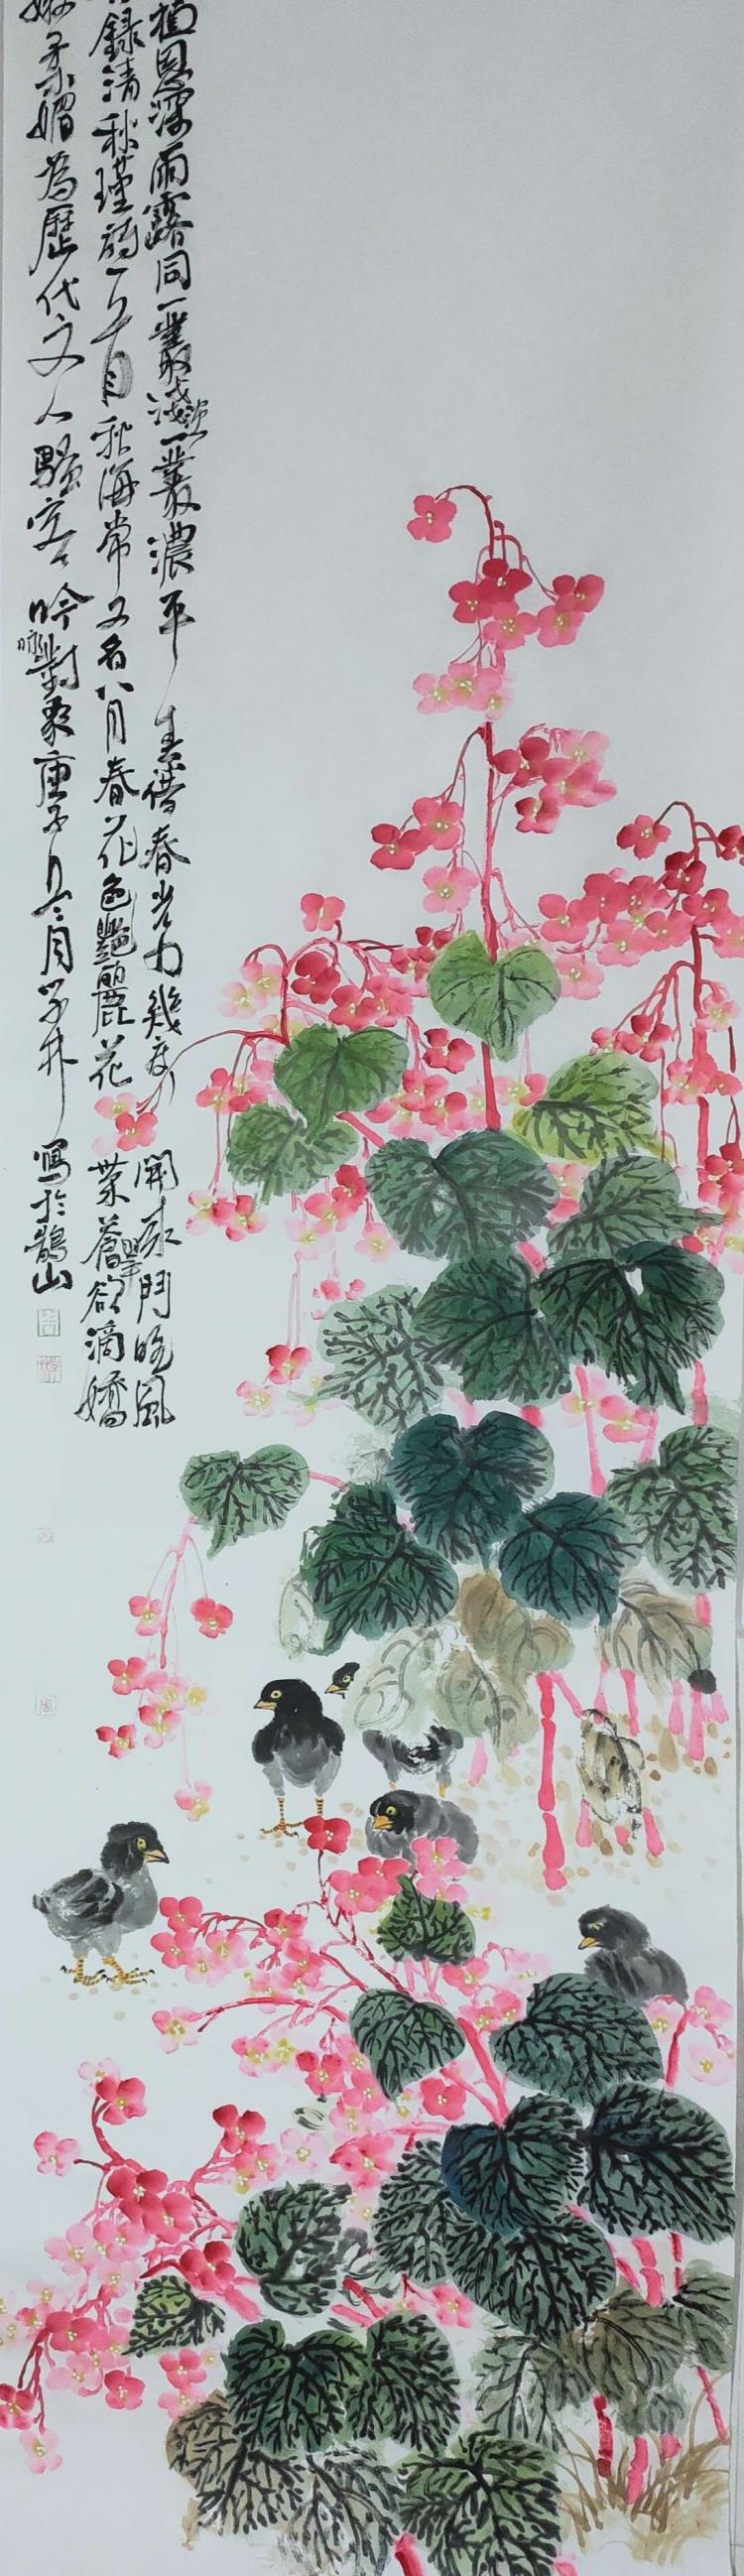 植恩深雨露同一叢淺淡一叢濃平生借春光力幾度開來鬥晚風
錄清秋瑾詩一首秋海棠又名八月春花色艷麗花葉蒼翠欲滴嬌
柔媚為歷代文人騷客吟詠對象庚子六月子井寫於鵲山